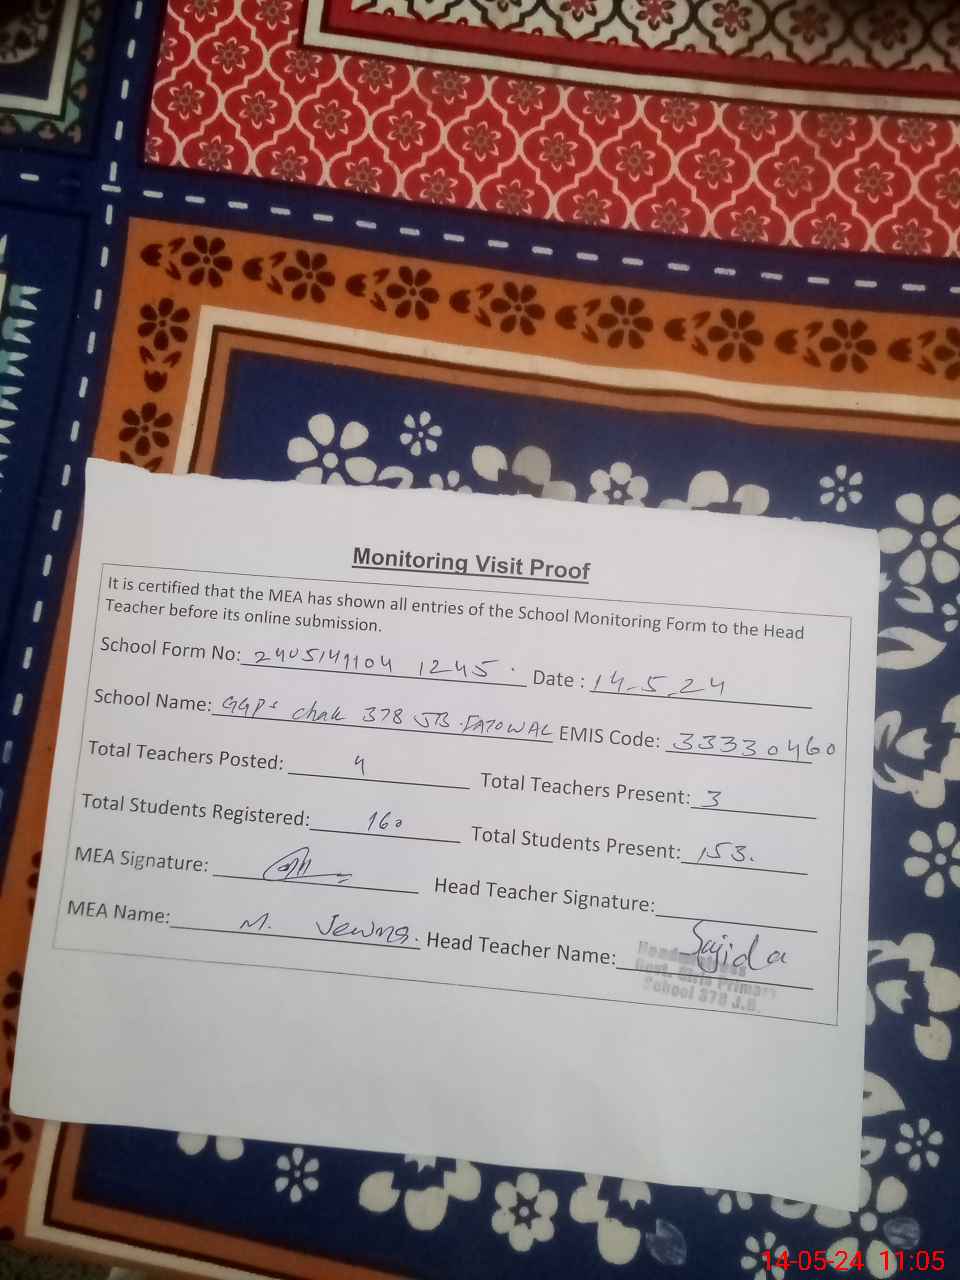 Monitoring Visit Proof
It is certified that the MEA has shown all entries of the School Monitoring Form to the Head
Teacher before its online submission.
School Form No: 2405141104 1245 . Date : 14-5-24
School Name: GGPS Chak 378 JB FATOWAL EMIS Code: 33330460
Total Teachers Posted: 4 Total Teachers Present: 3
Total Students Registered: 160 Total Students Present: 153.
MEA Signature: Head Teacher Signature:
MEA Name: M. Head Teacher Name: Sajida
Headmistress
Govt. Girls Primary
School 378 J.B.
14-05-24 11:05